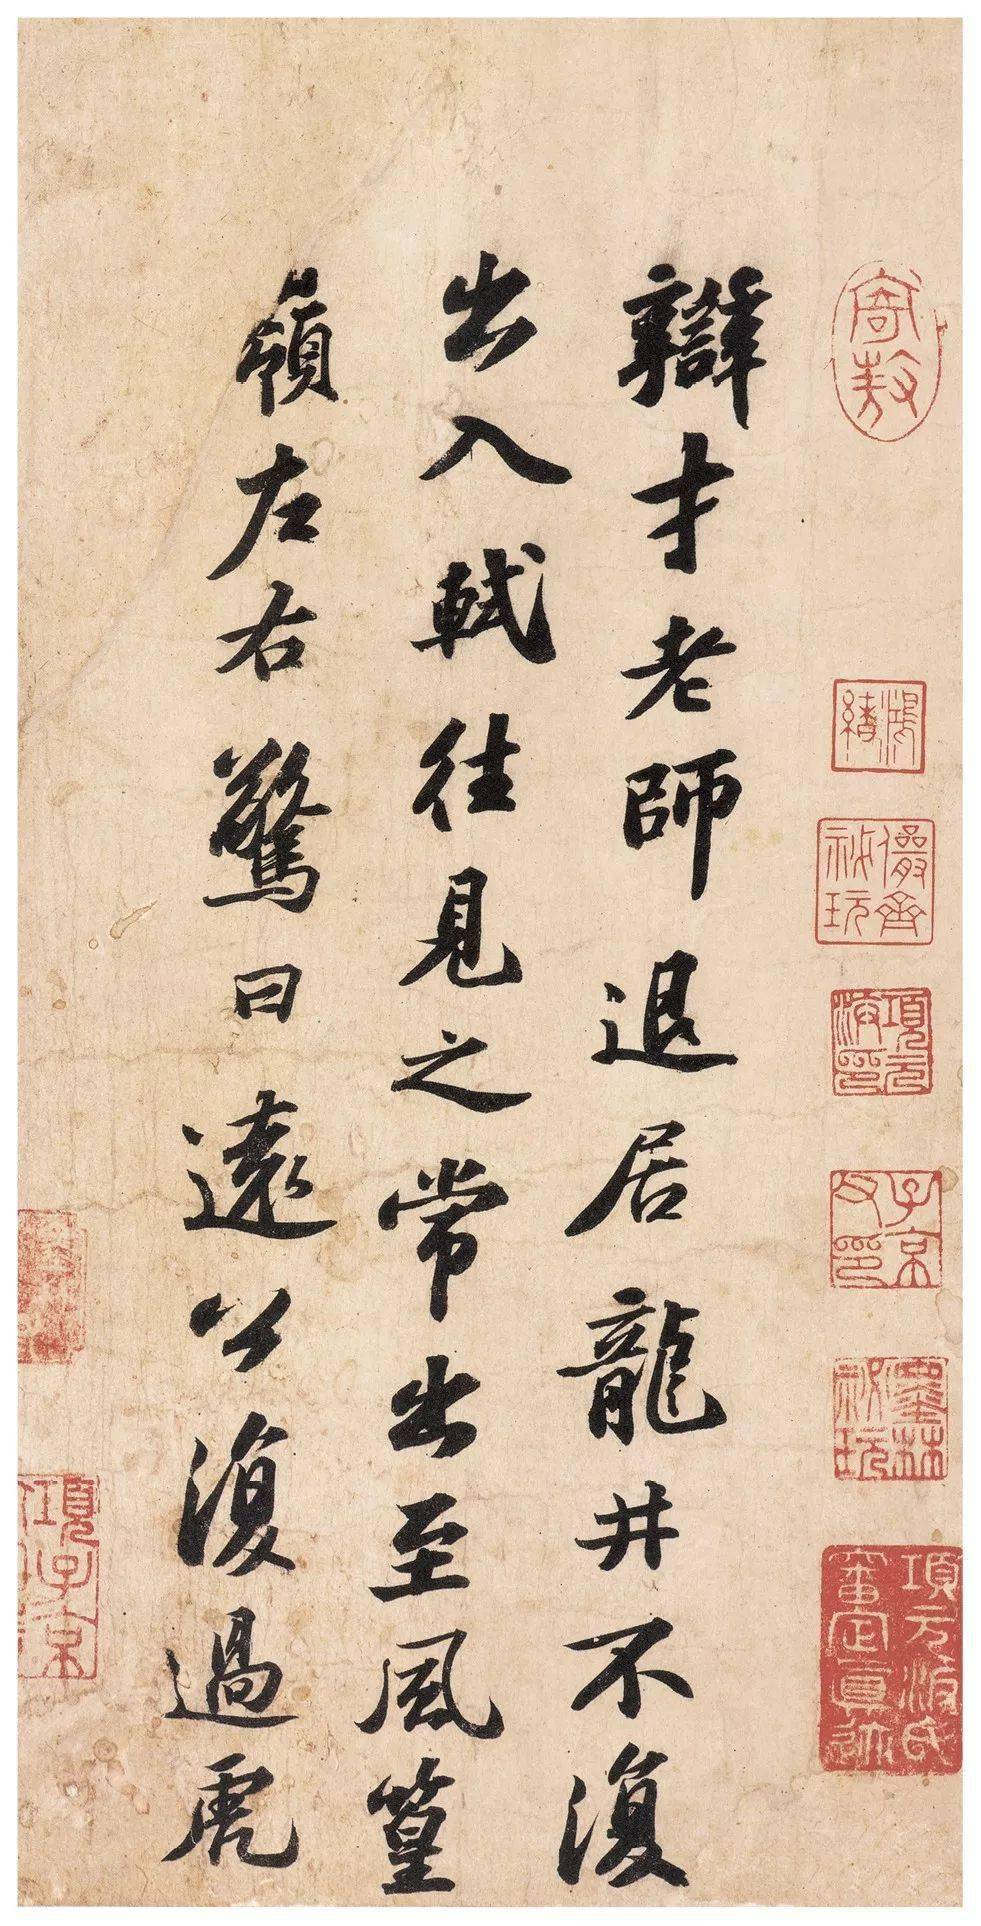 辯才老師退居龍井不復
出入軾往見之常出至風篁
嶺左右驚曰遠公復過虎
寄敖
項元汴印
子京父印
墨林祕玩
項元汴氏審定真迹
項子京